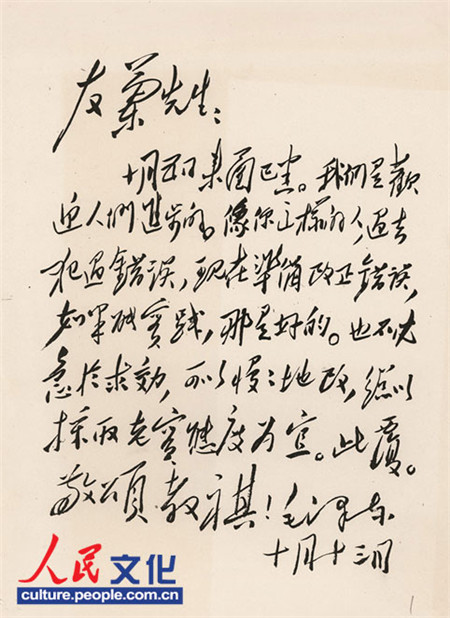 友兰先生：
十月五日来函已悉。我们是欢
迎人们进步的。像你这样的人，过去
犯过错误，现在准备改正错误，
如果能实践，那是好的。也不必
急于求效，可以慢慢地改，总以
采取老实态度为宜。此复。
敬颂教祺！毛泽东
十月十三日
人民文化
culture.people.com.cn
1